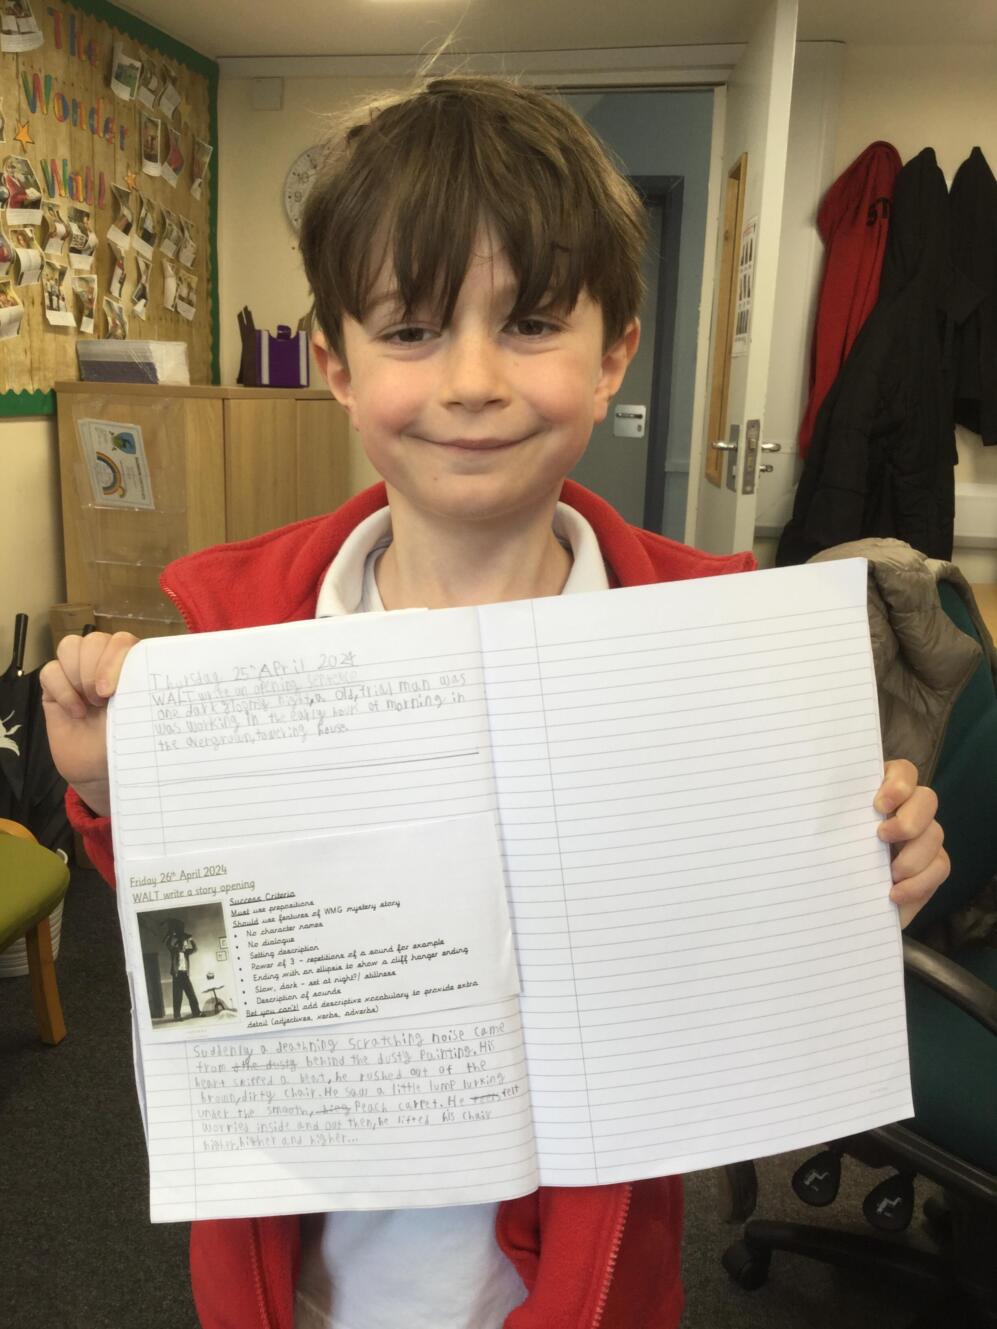 The
Wonder
Wall
ST
Thursday 25th April 2024
WALT write an opening sentence
one dark gloomy night, a old, frial man was
was working in the early hours of morning in
the overgrown, towering house.
Friday 26th April 2024
WALT write a story opening
Success Criteria
Must use prepositions
Should use features of WMG mystery story
• No character names
• No dialogue
• Setting description
• Power of 3 - repetitions of a sound for example
• Ending with an ellipsis to show a cliff hanger ending
• Slow, dark - set at night?/ stillness
• Description of sounds
Bet you can't! add descriptive vocabulary to provide extra
detail (adjectives, verbs, adverbs)
Suddenly, a deathning scratching noise came
from the dusty behind the dusty Painting. His
heart skipped a beat, he rushed out of the
brown, dirty chair. He saw a little lump lurking
under the smooth, Peach carpet. He felt
worried inside and out then, he lifted his chair
higher, higher and higher...